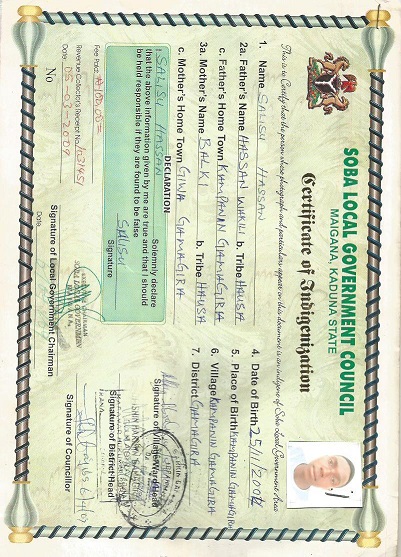 SOBA LOCAL GOVERNMENT COUNCIL
MAIGANA, KADUNA STATE
Certificate of Indigenization
This is to Certify that the person whose photograph and particulars appear on this document is an indigene of Soba Local Government Area
1. Name SALISU HASSAN
2a. Father's Name HASSAN WAKILI b. Tribe HAUSA
c. Father's Home Town KAMPANIN GAMAGIRA
3a. Mother's Name BALKI b. Tribe HAUSA
c. Mother's Home Town GIWA GAMAGIRA
4. Date of Birth 25/11/
5. Place of Birth KAMPANIN GAMAGIRA
6. Village KAMPANIN GAMAGIRA
7. District GAMAGIRA
DECLARATION
I SALISU HASSAN Solemnly declare
that the above information given by me are true and that I should
be held responsible if they are found to be false
SALISU
Signature
Signature of Village/Ward Head
Signature of District Head
Signature of Councillor
Fee Paid: ₦100.00=
Revenue Collector's Receipt No.
Date: 05-03-2009
No
SOBA LOCAL GOVERNMENT
Signature of Local Government Chairman
Date